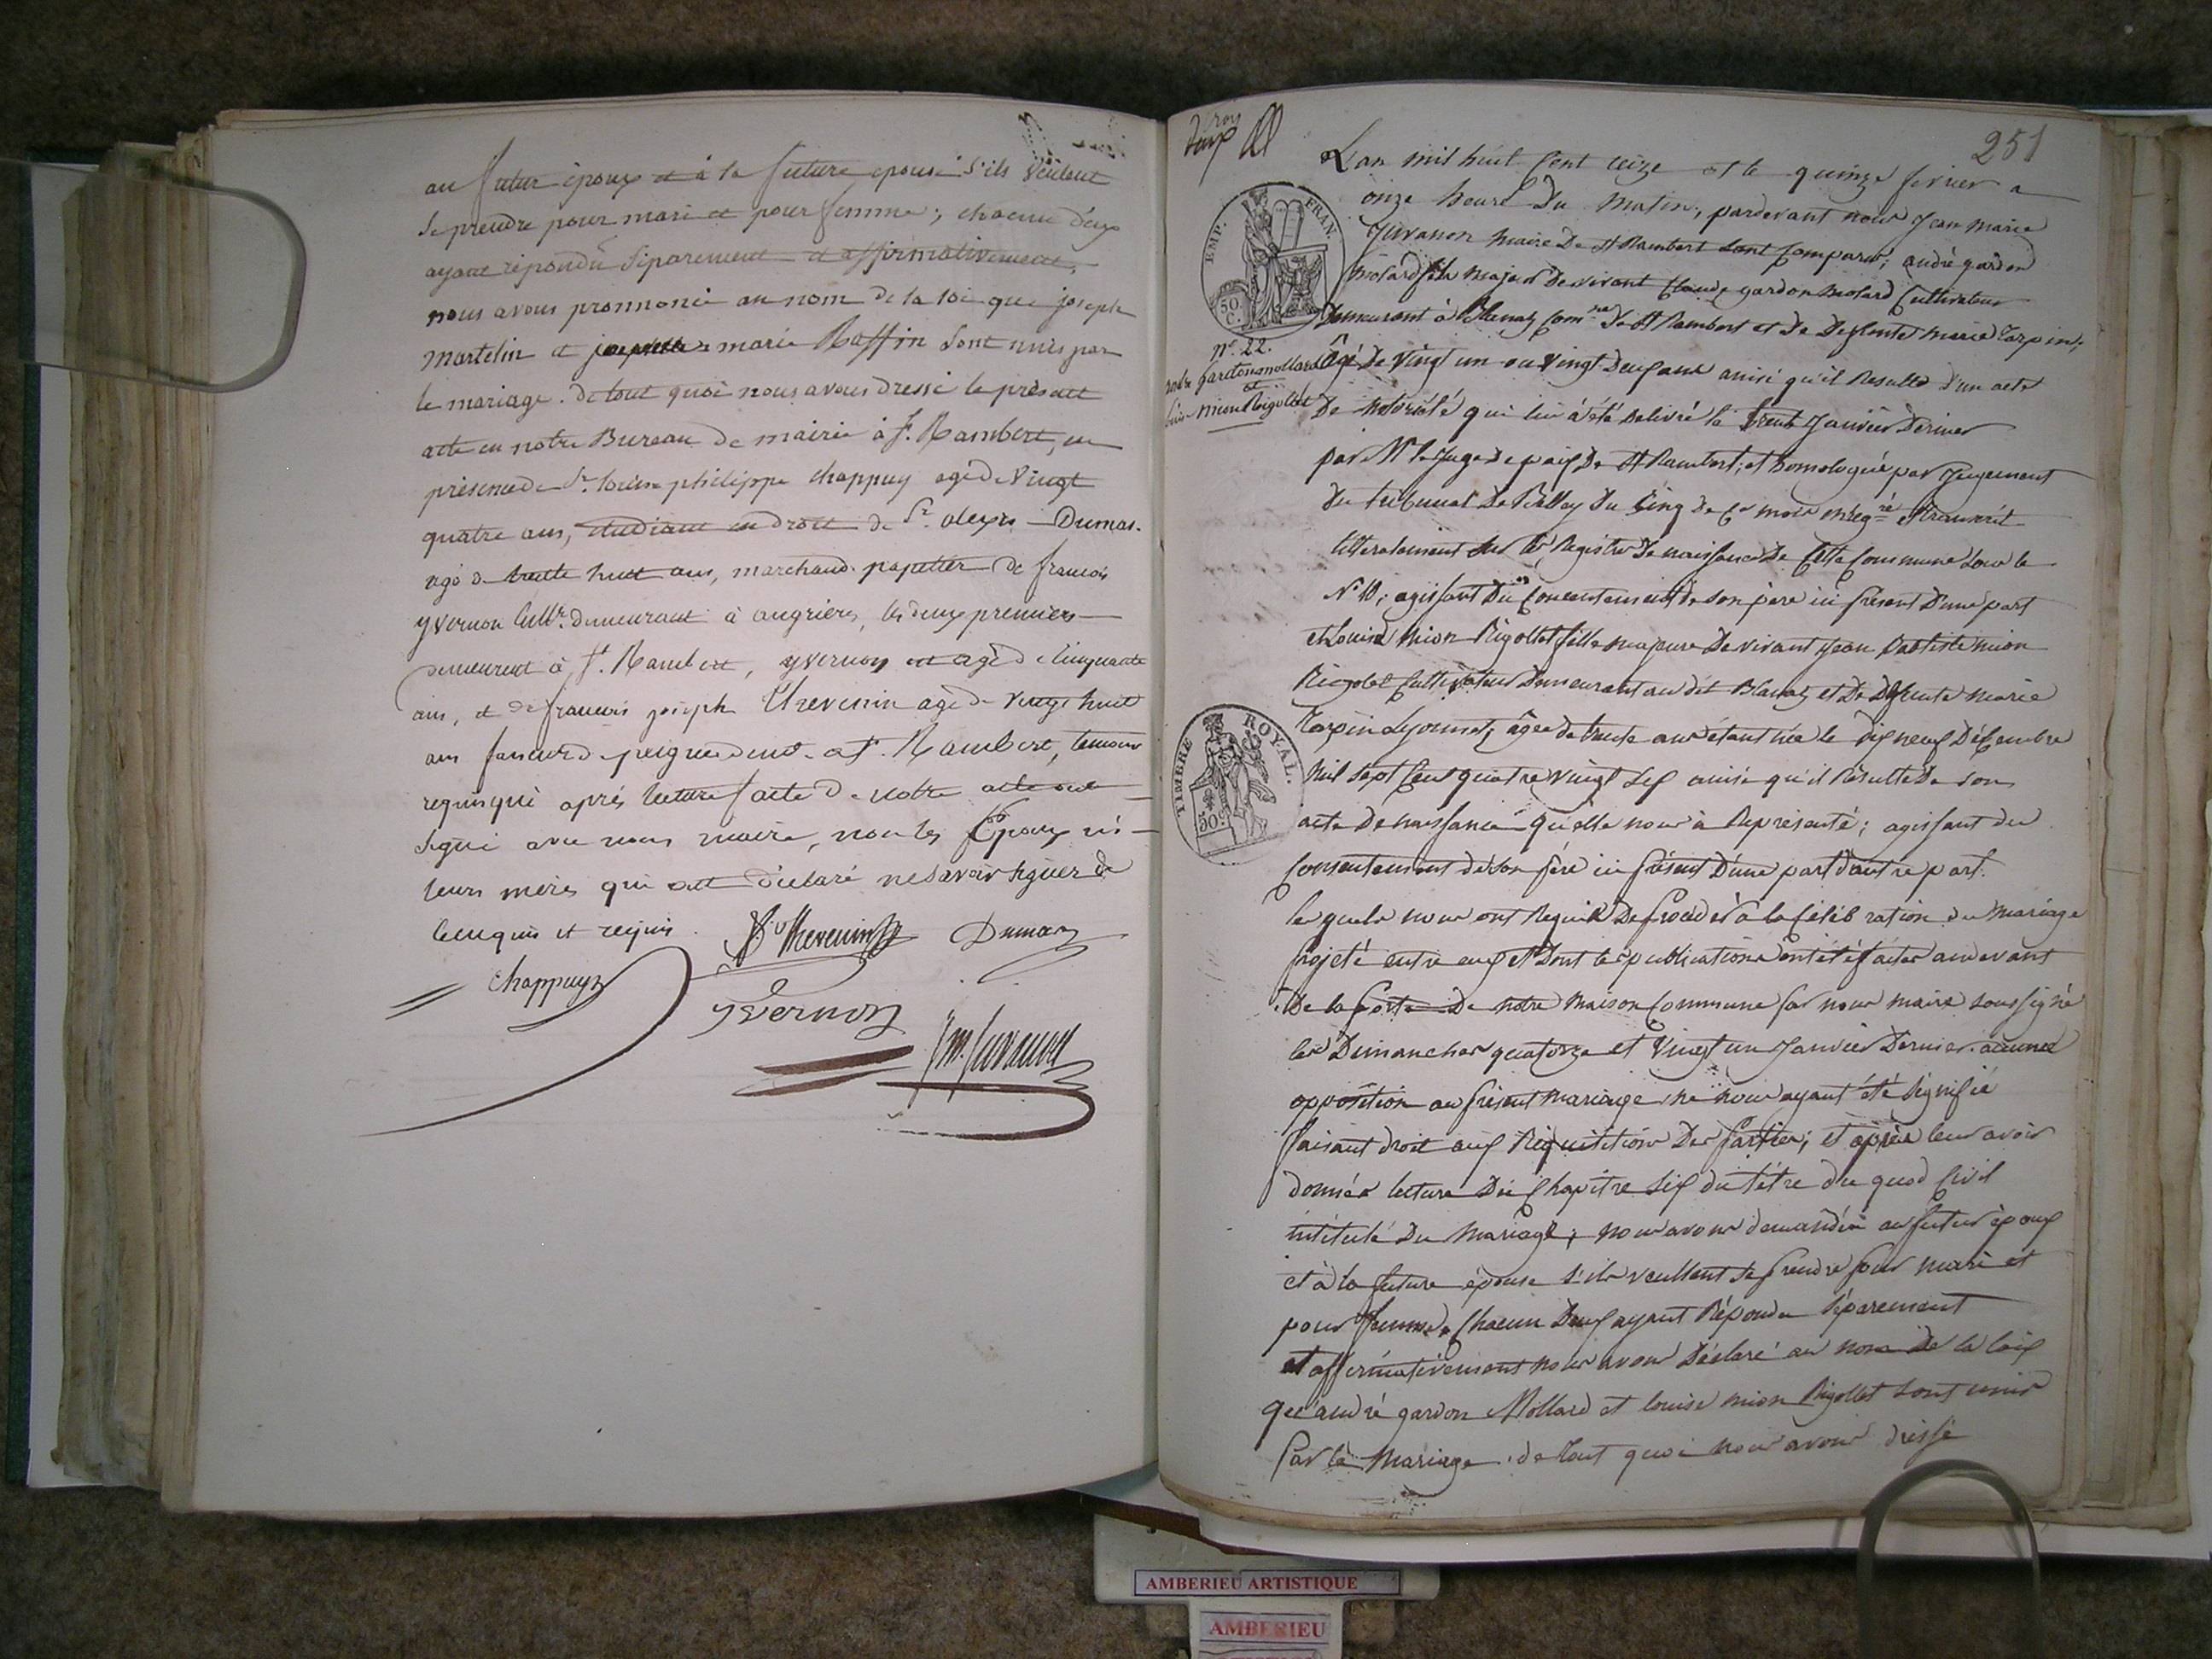 au futur époux et à la future epouse s'ils veulent
se prendre pour mari et pour femme; chacun d'eux
ayant répondu séparement et affirmativement,
nous avons prononcé au nom de la loi que joseph
martelin et marie Raffin sont unis par
le mariage. de tout quoi nous avons dressé le présent
acte en notre Bureau de mairie à St. Rambert, en
présence de Sr. philippe chappuy agé de vingt
quatre ans, étudiant en droit de Sr. alexis Dumas
agé de trente huit ans, marchand papetier de francois
yvernon cultr. demeurant à angrières, les deux premiers
demeurent à St. Rambert, yvernon est agé de cinquante
ans, et de francois joseph thevenin agé de vingt huit
ans faiseur de peigne demt. a St. Rambert, temoins
requis qui après lecture faite de notre acte ont
signé avec nous maire, non les Epoux ni
leurs mères qui ont déclaré ne savoir signer de
ce enquis et requis.
Thevenin Dumas
chappuy
yvernon
jm. juvanon
251
L'an mil huit cent seize et le quinze fevrier a
onze heure Du matin, pardevant nous Jean marie
Juvanon maire De St Rambert sont comparus, andré gardon
molard fils majeur De vivant Claude gardon molard Cultivateur
Demeurant à Blanaz Comne. De St Rambert et De Deffunte marie Tarpin,
âgé De vingt un ou vingt Deux ans ainsi qu'il Resulte D'un acte
De Notoriété qui lui à été Delivré le trente Janvier Dernier
par Mr le Juge De paix De St Rambert, et homologuée par Jugement
du tribunal De Belley Du Cinq de ce mois enregré. et transcrit
litteralement sur le Registre De naissance De Cette Commune sous le
No. 10; agissant Du Consentement de son père ici présent D'une part
et Louise mion Rigollet fille majeure De vivant Jean Baptiste mion
Rigolet Cultivateur Demeurant au dit Blanaz et De Deffunte Marie
Tarpin Lyonnet, âgée de trente ans étant née le dix neuf Décembre
mil sept Cent quatre vingt six ainsi qu'il Résulte De son
acte De naissance qu'elle nous à Représenté; agissant du
consentement de son père ici présent D'une part d'autre part.
les quels nous ont Requis De procéder à la Célébration du mariage
projeté entre eux et Dont les publications ont été faites au devant
De la porte De notre Maison Commune par nous maire soussigné
les Dimanches quatorze et vingt un Janvier Dernier. aucune
opposition au présent mariage ne nous ayant été signifié
faisant droit aux Réquisitions Des parties; et après leur avoir
donnée lecture Du Chapitre six du titre du quod civil
intitulé Du Mariage; nous avons demandé au futur époux
et à la future épouse s'ils veullent se prendre pour mari et
pour femme, Chacun Deux ayant Répondu séparement
et affirmativement nous avons Déclaré au nom De la loix
qu'andré gardon Mollard et louise mion Rigollet sont unis
par le Mariage. de tout quoi nous avons dressé
EMP. FRAN.
50 C.
No. 22.
andré gardon mollard
et
Louise mion Rigollet
TIMBRE ROYAL.
50 c.
AMBERIEU ARTISTIQUE
AMBERIEU